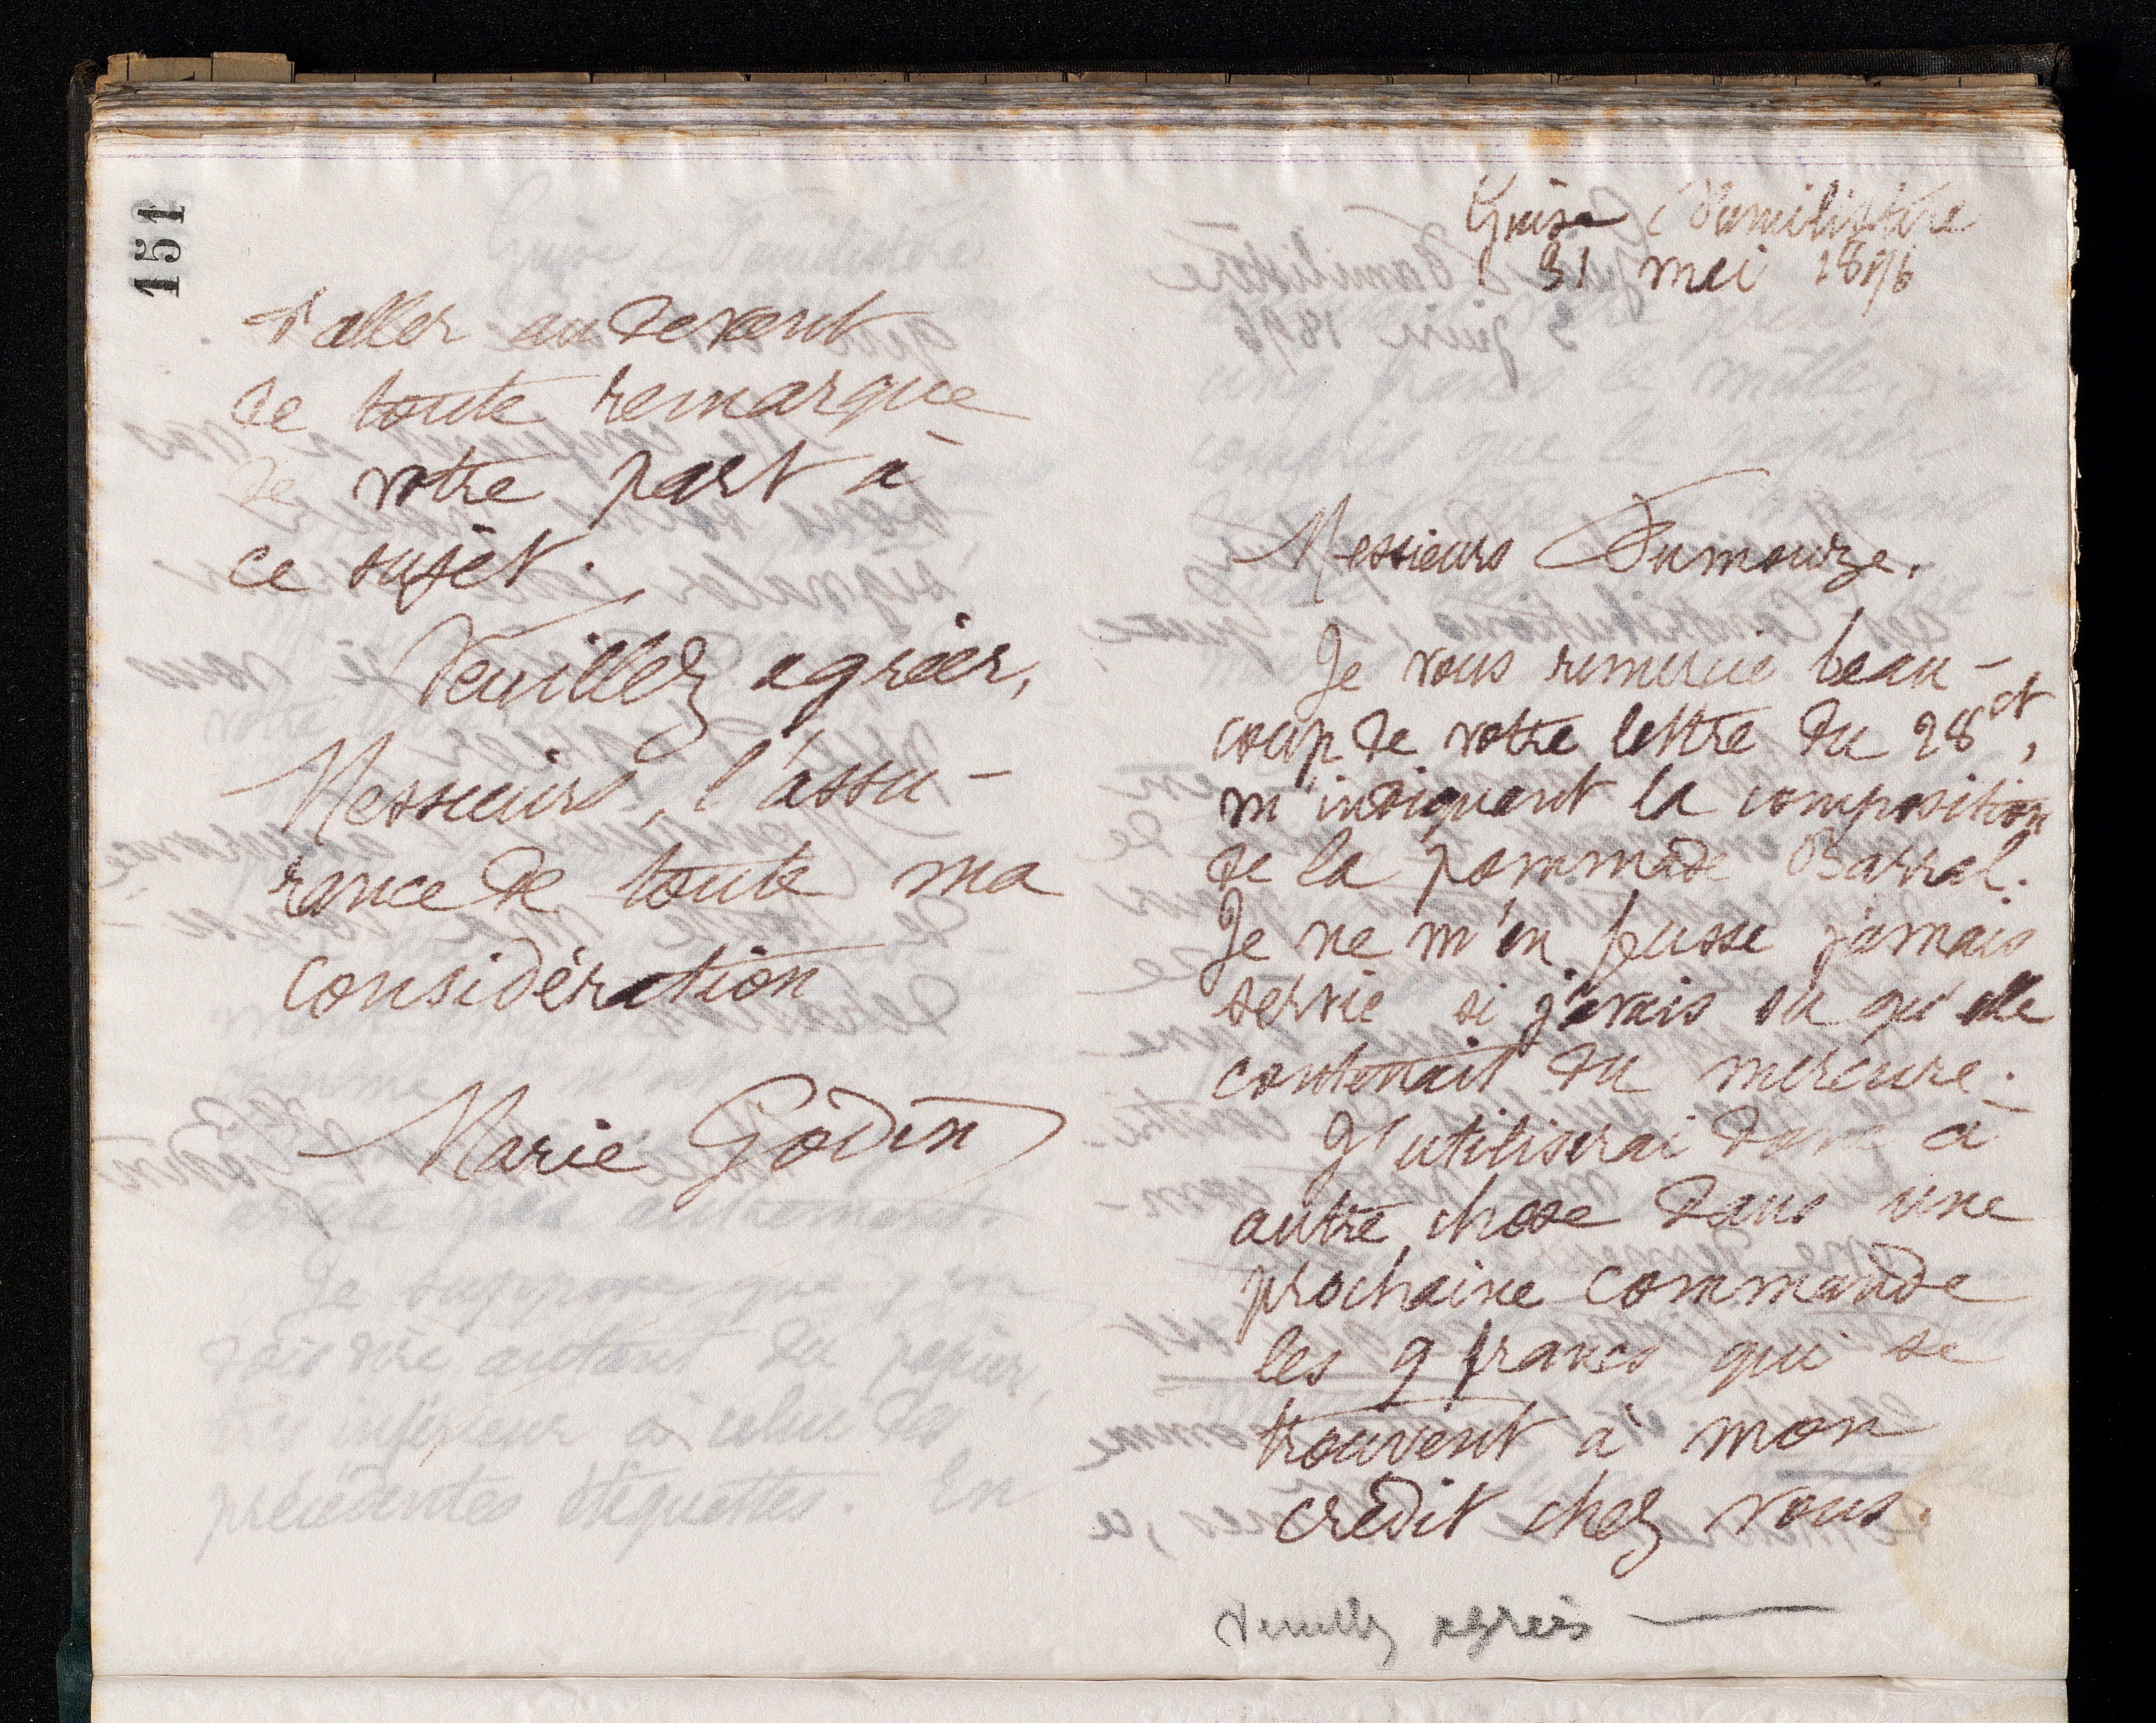 151
d'aller au devant
de toute remarque
de votre part à
ce sujet.
Veuillez agréer,
Messieurs, l'assu-
rance de toute ma
considération
Marie Godin
Guise Familistère
31 mai 1896
Messieurs Fumouze.
Je vous remercie beau-
coup de votre lettre du 28 ct,
m'indiquant la composition
de la pommade Barral.
Je ne m'en fusse jamais
servie si j'avais su qu'elle
contenait du mercure.
J'utiliserai donc à
autre chose dans une
prochaine commande
les 9 francs qui se
trouvent à mon
crédit chez vous.
Veuillez agréer